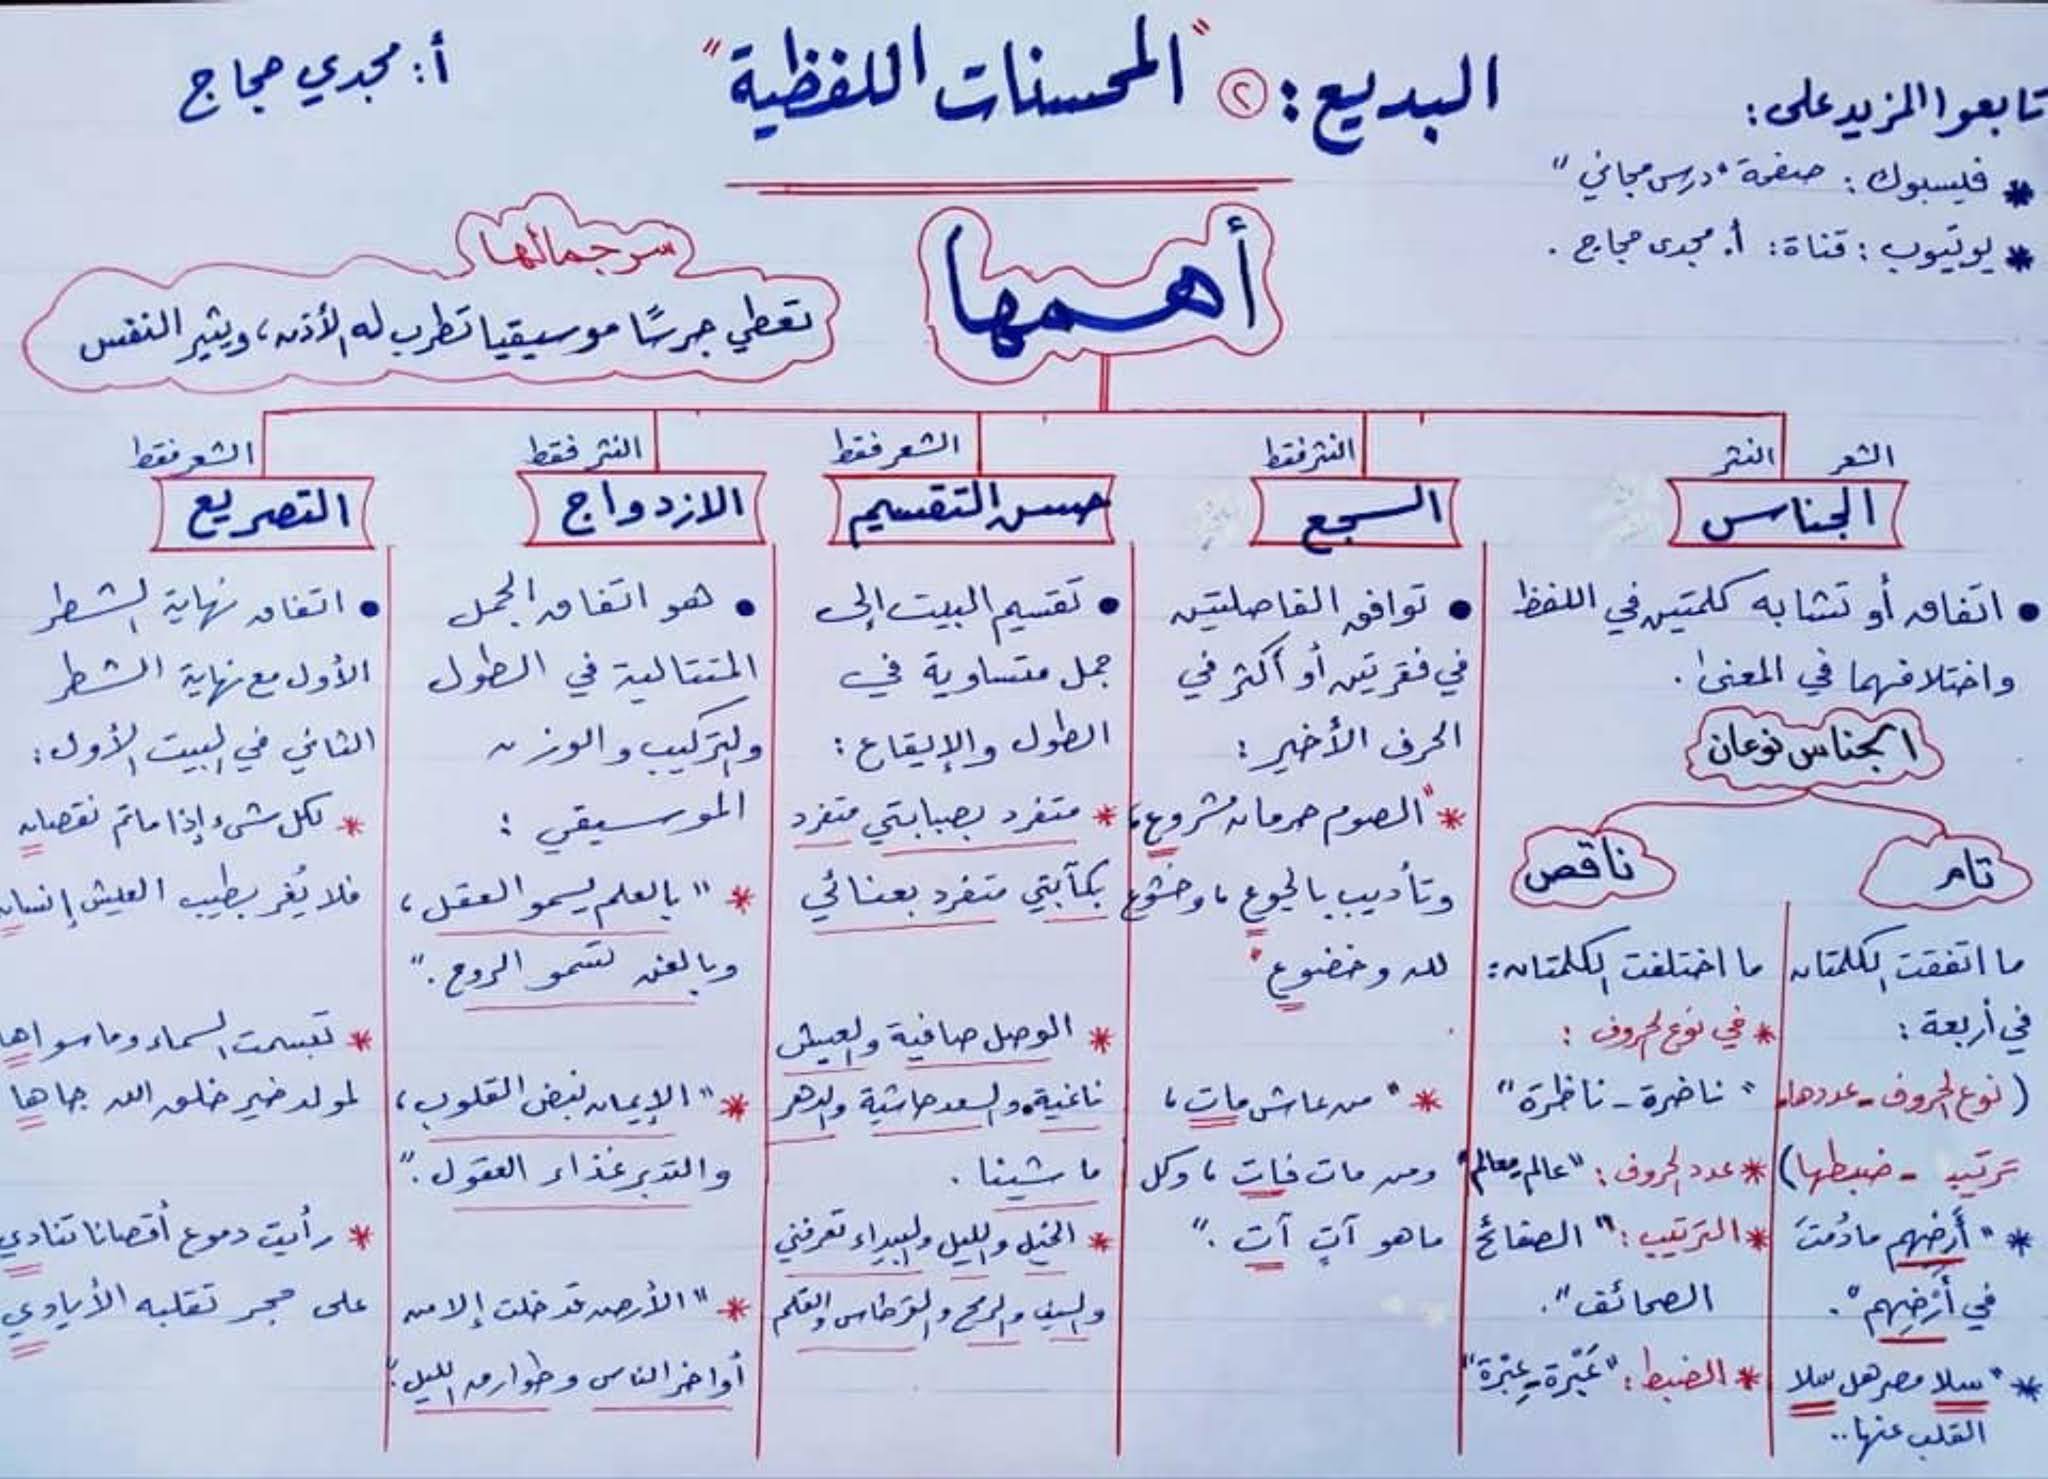 تابعوا المزيد على:
* فليسبوك: صفحة "درس مجاني"
* يوتيوب: قناة: أ. مجدى حجاج.
البديع: ٢ "المحسنات اللفظية"
أ: مجدي حجاج
أهمها
سر جمالها
تعطي جرسًا موسيقيا تطرب له الأذن، ويثير النفس
الشعر النثر
الجناس
• اتفاق أو تشابه كلمتين في اللفظ
واختلافهما في المعنى.
الجناس نوعان
تام
ما اتفقت الكلمتان
في أربعة:
(نوع الحروف - عددها
ترتيب - ضبطها)
* "أَرضِهم مادُمتَ
في أَرْضِهم".
* "سلا مصر هل سلا
القلب عنها..
ناقص
ما اختلفت الكلمتان:
* في نوع الحروف:
"ناضرة - ناظرة"
* عدد الحروف: "عالم - معالم"
* الترتيب: "الصفائح
الصحائف".
* الضبط: "عَبْرة - عِبْرة"
النثر فقط
السجع
• توافق الفاصلتين
في فقرتين أو أكثر في
الحرف الأخير:
* "الصوم حرمان مشروع،
وتأديب بالجوع، وخشوع
لله وخضوع"
* "من عاش مات،
ومن مات فات، وكل
ما هو آتٍ آت."
الشعر فقط
حسن التقسيم
• تقسيم البيت إلى
جمل متساوية في
الطول والإيقاع:
* متفرد بصبابتي متفرد
بكآبتي متفرد بعنائي
* الوصل صافية والعيش
ناغية والسعد حاشية والدهر
ماشينا.
* الخيل والليل والبيداء تعرفني
والسيف والرمح والقرطاس والقلم
النثر فقط
الازدواج
• هو اتفاق الجمل
المتتالية في الطول
والتركيب والوزن
الموسيقي:
* "بالعلم يسمو العقل،
وبالفن تسمو الروح."
* "الإيمان نبض القلوب،
والتدبر غذاء العقول."
* "الأرض قد خلت إلا من
أواخر الناس وطوارق الليل."
الشعر فقط
التصريع
• اتفاق نهاية الشطر
الأول مع نهاية الشطر
الثاني في البيت الأول:
* لكل شىء إذا ماتم نقصان
فلا يُغر بطيب العيش إنسان
* تبسمت السماء وما سواها
لمولد خير خلق الله جاها
* رأيت دموع أقصانا تنادي
على حجر تقلبه الأيادي